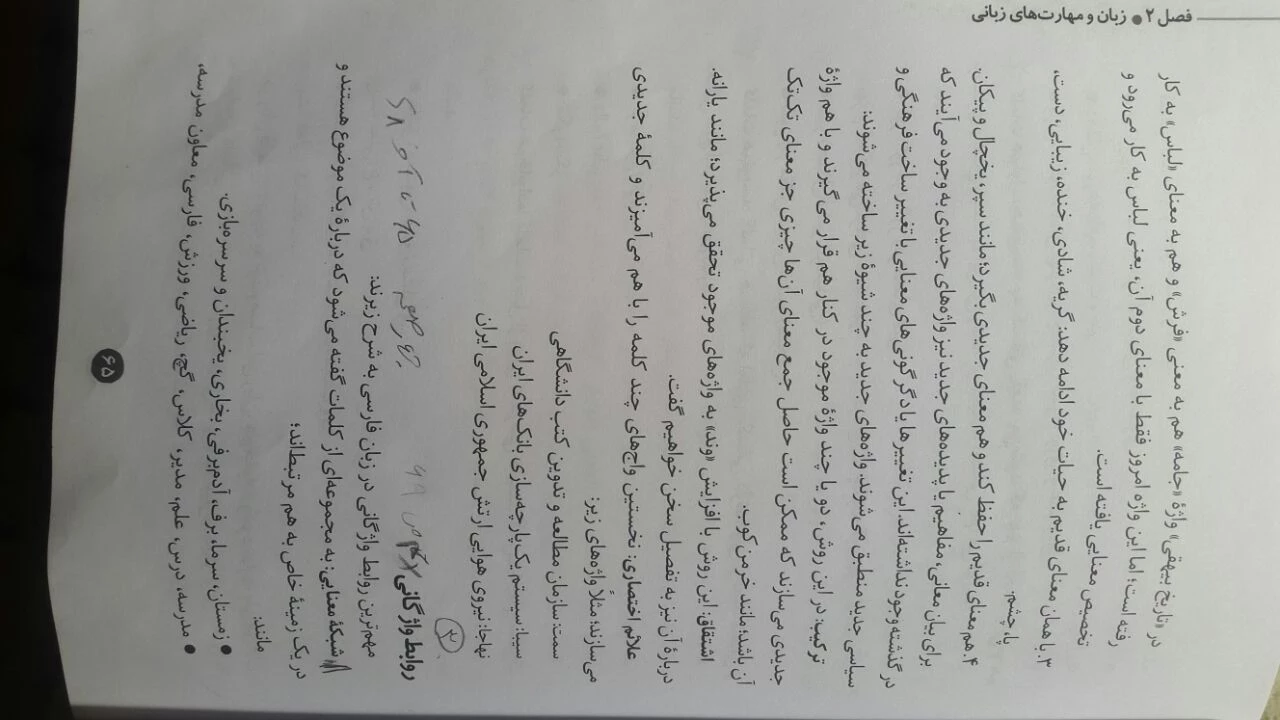 فصل ۲ ● زبان و مهارت‌های زبانی
در «تاریخ بیهقی» واژهٔ «جامه» هم به معنی «فرش» و هم به معنای «لباس» به کار
رفته است؛ اما این واژه امروز فقط با معنای دوم آن، یعنی لباس به کار می‌رود و
تخصیص معنایی یافته است.
۳. با همان معنای قدیم به حیات خود ادامه دهد: گریه، شادی، خنده، زیبایی، دست،
پا، چشم.
۴. هم معنای قدیم را حفظ کند و هم معنای جدیدی بگیرد؛ مانند سپر، یخچال و پیکان.
برای بیان معانی، مفاهیم یا پدیده‌های جدید نیز واژه‌های جدیدی به وجود می‌آیند که
در گذشته وجود نداشته‌اند. این تغییرها یا دگرگونی‌های معنایی با تغییر ساخت فرهنگی و
سیاسی جدید منطبق می‌شوند. واژه‌های جدید به چند شیوهٔ زیر ساخته می‌شوند:
ترکیب: در این روش، دو یا چند واژهٔ موجود در کنار هم قرار می‌گیرند و با هم واژهٔ
جدیدی می‌سازند که ممکن است حاصل جمع معنای آن‌ها چیزی جز معنای تک‌تک
آن باشد؛ مانند خرمن‌کوب.
اشتقاق: این روش با افزایش «وند» به واژه‌های موجود تحقق می‌پذیرد؛ مانند یارانه.
دربارهٔ آن نیز به تفصیل سخن خواهیم گفت.
علائم اختصاری: نخستین واج‌های چند کلمه را با هم می‌آمیزند و کلمهٔ جدیدی
می‌سازند؛ مثلاً واژه‌های زیر:
سمت: سازمان مطالعه و تدوین کتب دانشگاهی
سیبا: سیستم یک‌پارچه‌سازی بانک‌های ایران
نهاجا: نیروی هوایی ارتش جمهوری اسلامی ایران
۲
روابط واژگانی
مهم‌ترین روابط واژگانی در زبان فارسی به شرح زیرند:
شبکهٔ معنایی: به مجموعه‌ای از کلمات گفته می‌شود که دربارهٔ یک موضوع هستند و
در یک زمینهٔ خاص به هم مرتبط‌اند؛
مانند:
● زمستان، سرما، برف، آدم‌برفی، بخاری، یخبندان و سرسره‌بازی.
● مدرسه، درس، علم، مدیر، کلاس، گچ، ریاضی، ورزش، فارسی، معاون مدرسه،
۶۵